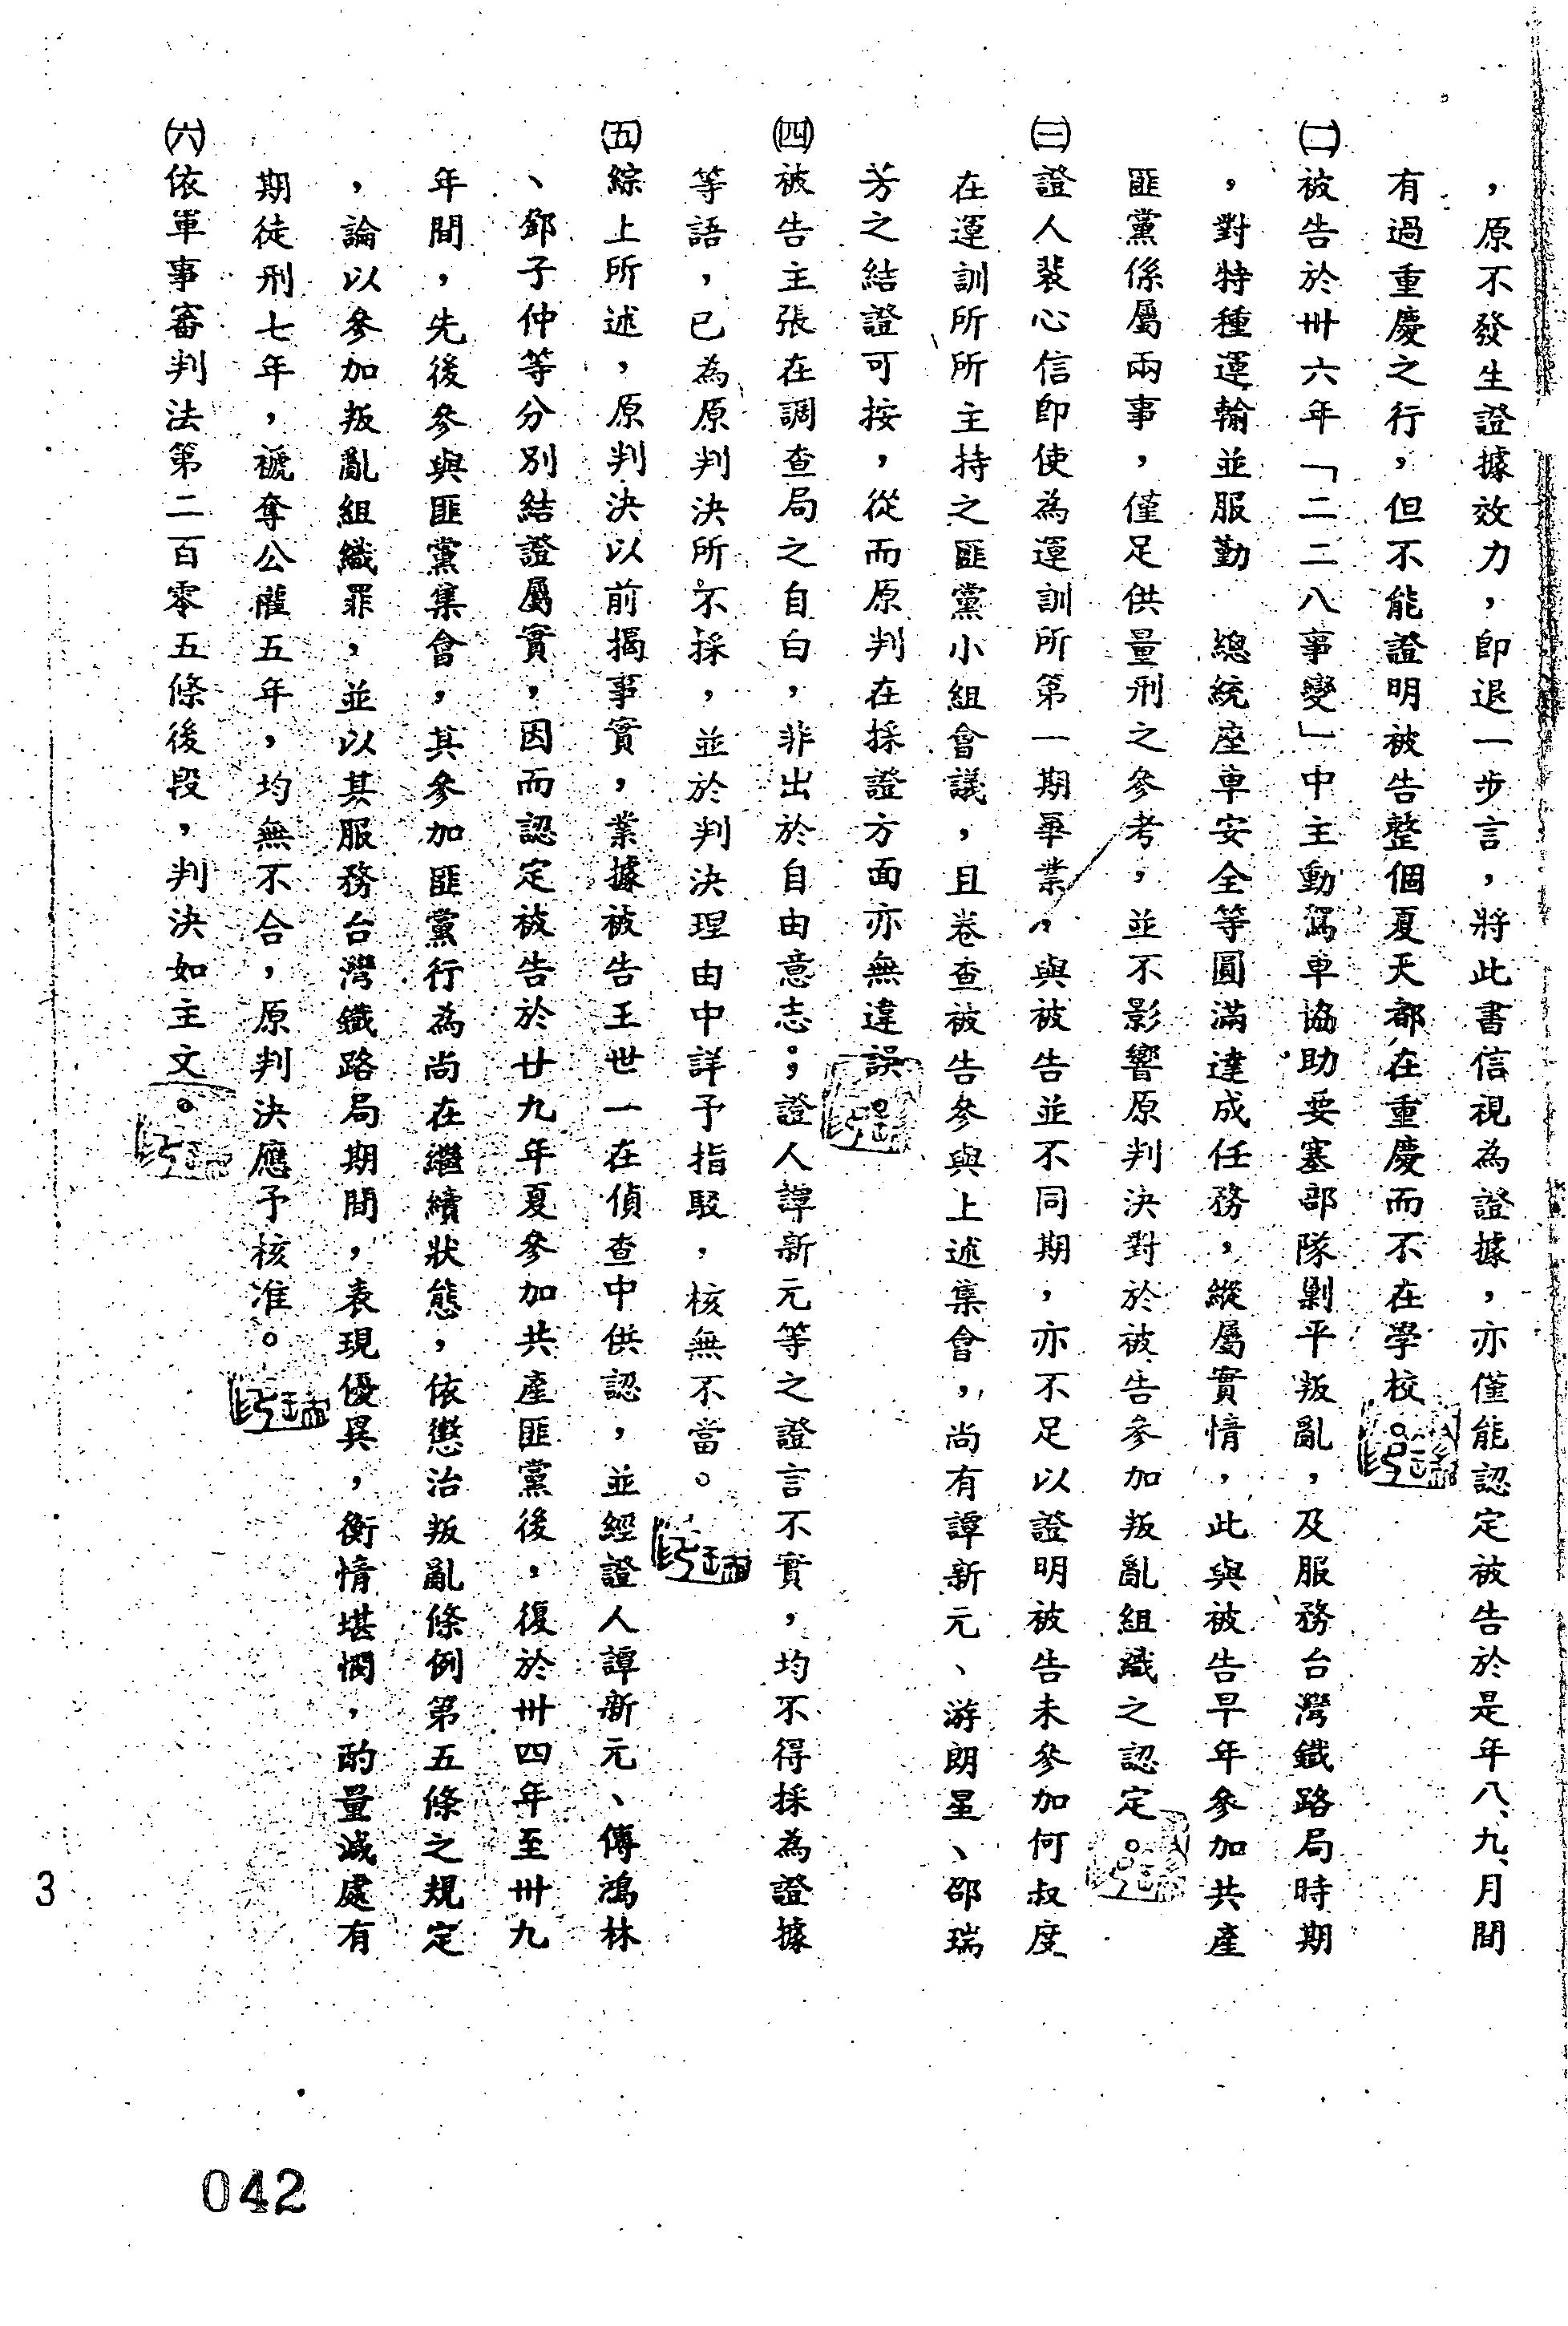 ，原不發生證據效力，即退一步言，將此書信視為證據，亦僅能認定被告於是年八、九、月間
有過重慶之行，但不能證明被告整個夏天都在重慶而不在学校。
㈡被告於卅六年「二二八事變」中主動駕車協助要塞部隊剿平叛亂，及服務台灣鐵路局時期
，對特種運輸並服勤　總統座車安全等圓滿達成任務，縱屬實情，此與被告早年參加共產
匪黨係屬兩事，僅足供量刑之參考，並不影響原判決對於被告參加叛亂組織之認定。
㈢證人裴心信即使為運訓所第一期畢業，與被告並不同期，亦不足以證明被告未參加何叔度
在運訓所所主持之匪黨小組會議，且卷查被告參與上述集會，尚有譚新元、游朗星、邵瑞
芳之結證可按，從而原判在採證方面亦無違誤。
㈣被告主張在調查局之自白，非出於自由意志；證人譚新元等之證言不實，均不得採為證據
等語，已為原判決所不採，並於判決理由中詳予指駁，核無不當。
㈤綜上所述，原判決以前揭事實，業據被告王世一在偵查中供認，並經證人譚新元、傅鴻林
、鄧子仲等分別結證屬實，因而認定被告於廿九年夏參加共產匪黨後，復於卅四年至卅九
年間，先後參與匪黨集會，其參加匪黨行為尚在繼續狀態，依懲治叛亂條例第五條之規定
，論以參加叛亂組織罪，並以其服務台灣鐵路局期間，表現優異，衡情堪憫，酌量減處有
期徒刑七年，褫奪公權五年，均無不合，原判決應予核准。
㈥依軍事審判法第二百零五條後段，判決如主文。
3
042